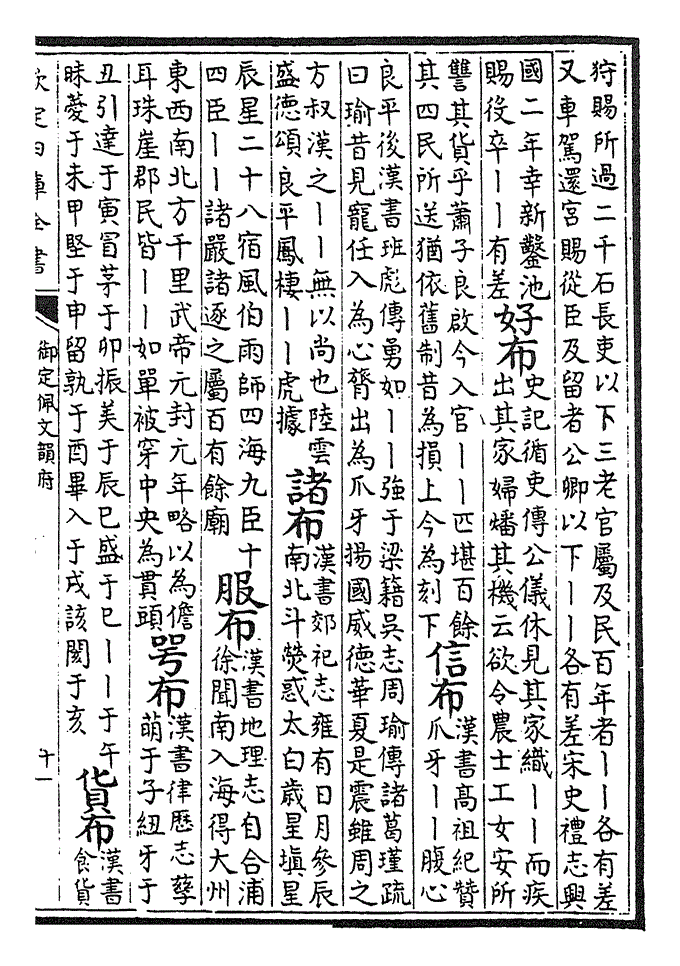 狩賜所過二千石長吏以下三老官屬及民百年者丨丨各有差
又車駕還宮賜從臣及留者公卿以下丨丨各有差宋史禮志興
國二年幸新鑿池
賜役卒丨丨有差
好布
史記循吏傳公儀休見其家織丨丨而疾
出其家婦燔其機云欲令農士工女安所
讐其貨乎蕭子良啟今入官丨丨匹堪百餘
其四民所送猶依舊制昔為損上今為刻下
信布
漢書高祖紀贊
爪牙丨丨腹心
良平後漢書班彪傳勇如丨丨強于梁籍吳志周瑜傳諸葛瑾疏
曰瑜昔見寵任入為心膂出為爪牙揚國威德華夏是震雖周之
方叔漢之丨丨無以尚也陸雲
盛德頌良平鳳棲丨丨虎據
諸布
漢書郊祀志雍有日月參辰
南北斗熒惑太白歲星塡星
辰星二十八宿風伯雨師四海九臣十
四臣丨丨諸嚴諸逐之屬百有餘廟
服布
漢書地理志自合浦
徐聞南入海得大州
東西南北方千里武帝元封元年略以為儋
耳珠崖郡民皆丨丨如單被穿中央為貫頭
咢布
漢書律歴志孳
萌于子紐牙于
丑引達于寅冒茅于卯振美于辰巳盛于巳丨丨于午
昧薆于未甲堅于申留孰于酉畢入于戌該閡于亥
貨布
漢書
食貨
欽定四庫全書
御定佩文韻府
十一